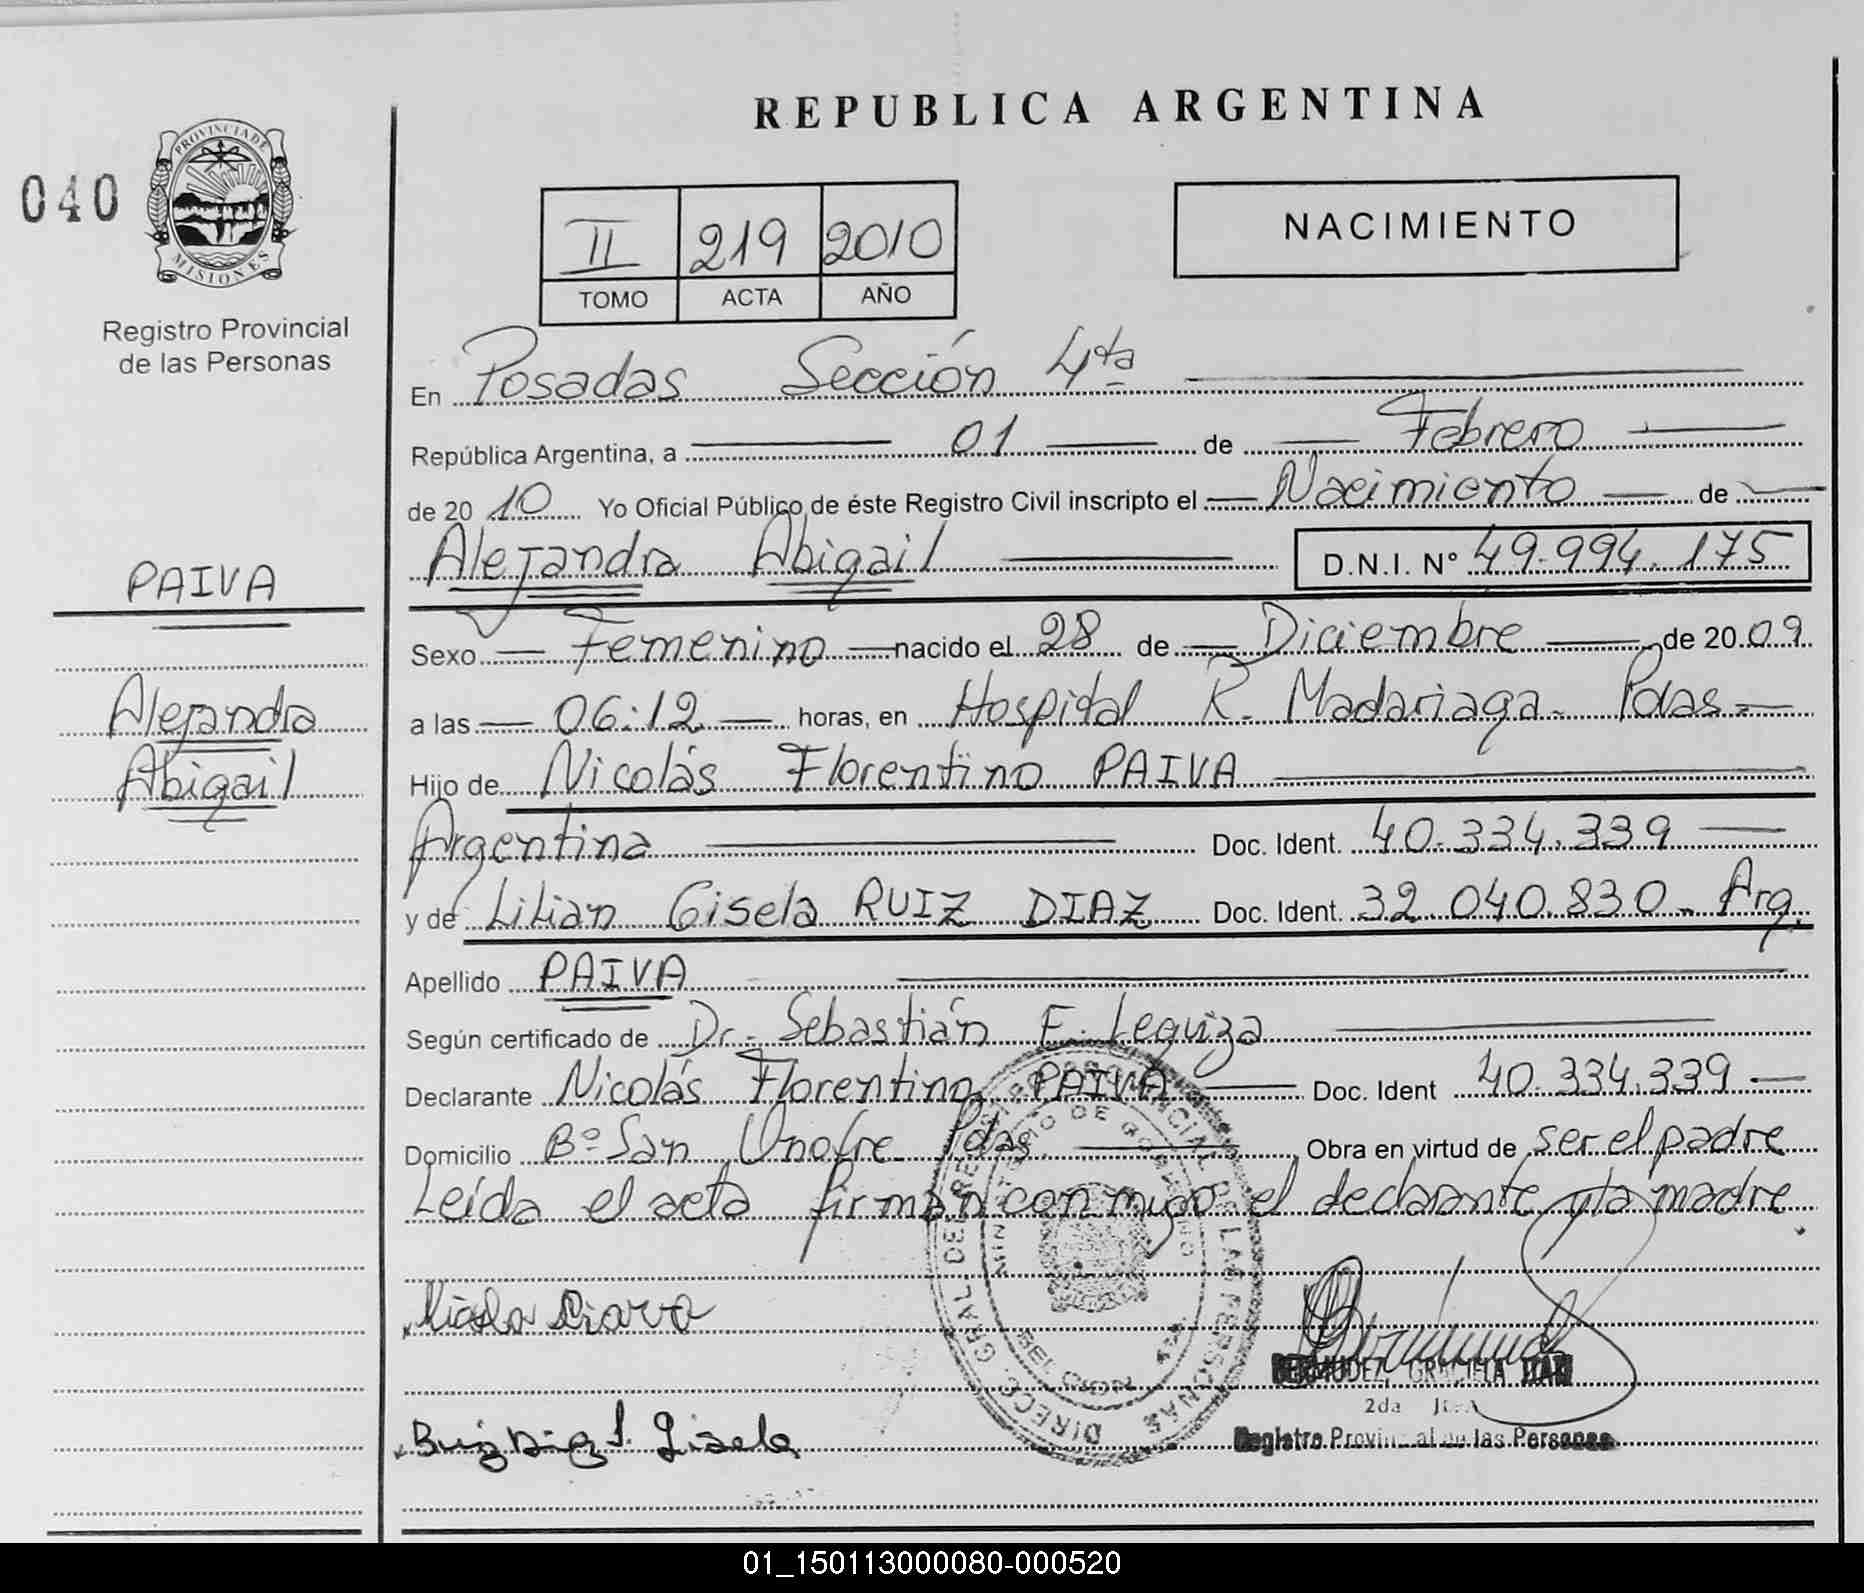 REPUBLICA ARGENTINA
040
PROVINCIA DE MISIONES
Registro Provincial
de las Personas
II 219 2010
TOMO ACTA AÑO
NACIMIENTO
En Posadas Sección 4ta
República Argentina, a 01 de Febrero
de 20 10 Yo Oficial Público de éste Registro Civil inscripto el Nacimiento de
Alejandra Abigail D.N.I. Nº 49.994.175
PAIVA
Alejandra
Abigail
Sexo Femenino nacido el 28 de Diciembre de 20 09
a las 06:12 horas, en Hospital R. Madariaga - Pdas
Hijo de Nicolás Florentino PAIVA
Argentina Doc. Ident. 40.334.339
y de Lilian Gisela RUIZ DIAZ Doc. Ident. 32.040.830 - Arg.
Apellido PAIVA
Según certificado de Dr. Sebastián E. Leguiza
Declarante Nicolás Florentino PAIVA Doc. Ident 40.334.339
Domicilio Bº San Onofre Pdas. Obra en virtud de ser el padre
Leída el acta firman conmigo el declarante y la madre.
DIRECC. GRAL DEL REGISTRO PROVINCIAL DE LAS PERSONAS
MINISTERIO DE GOBIERNO
Ruiz Diaz L. Gisela
BERMUDEZ, GRACIELA
2da
Registro Provincial de las Personas
01_150113000080-000520